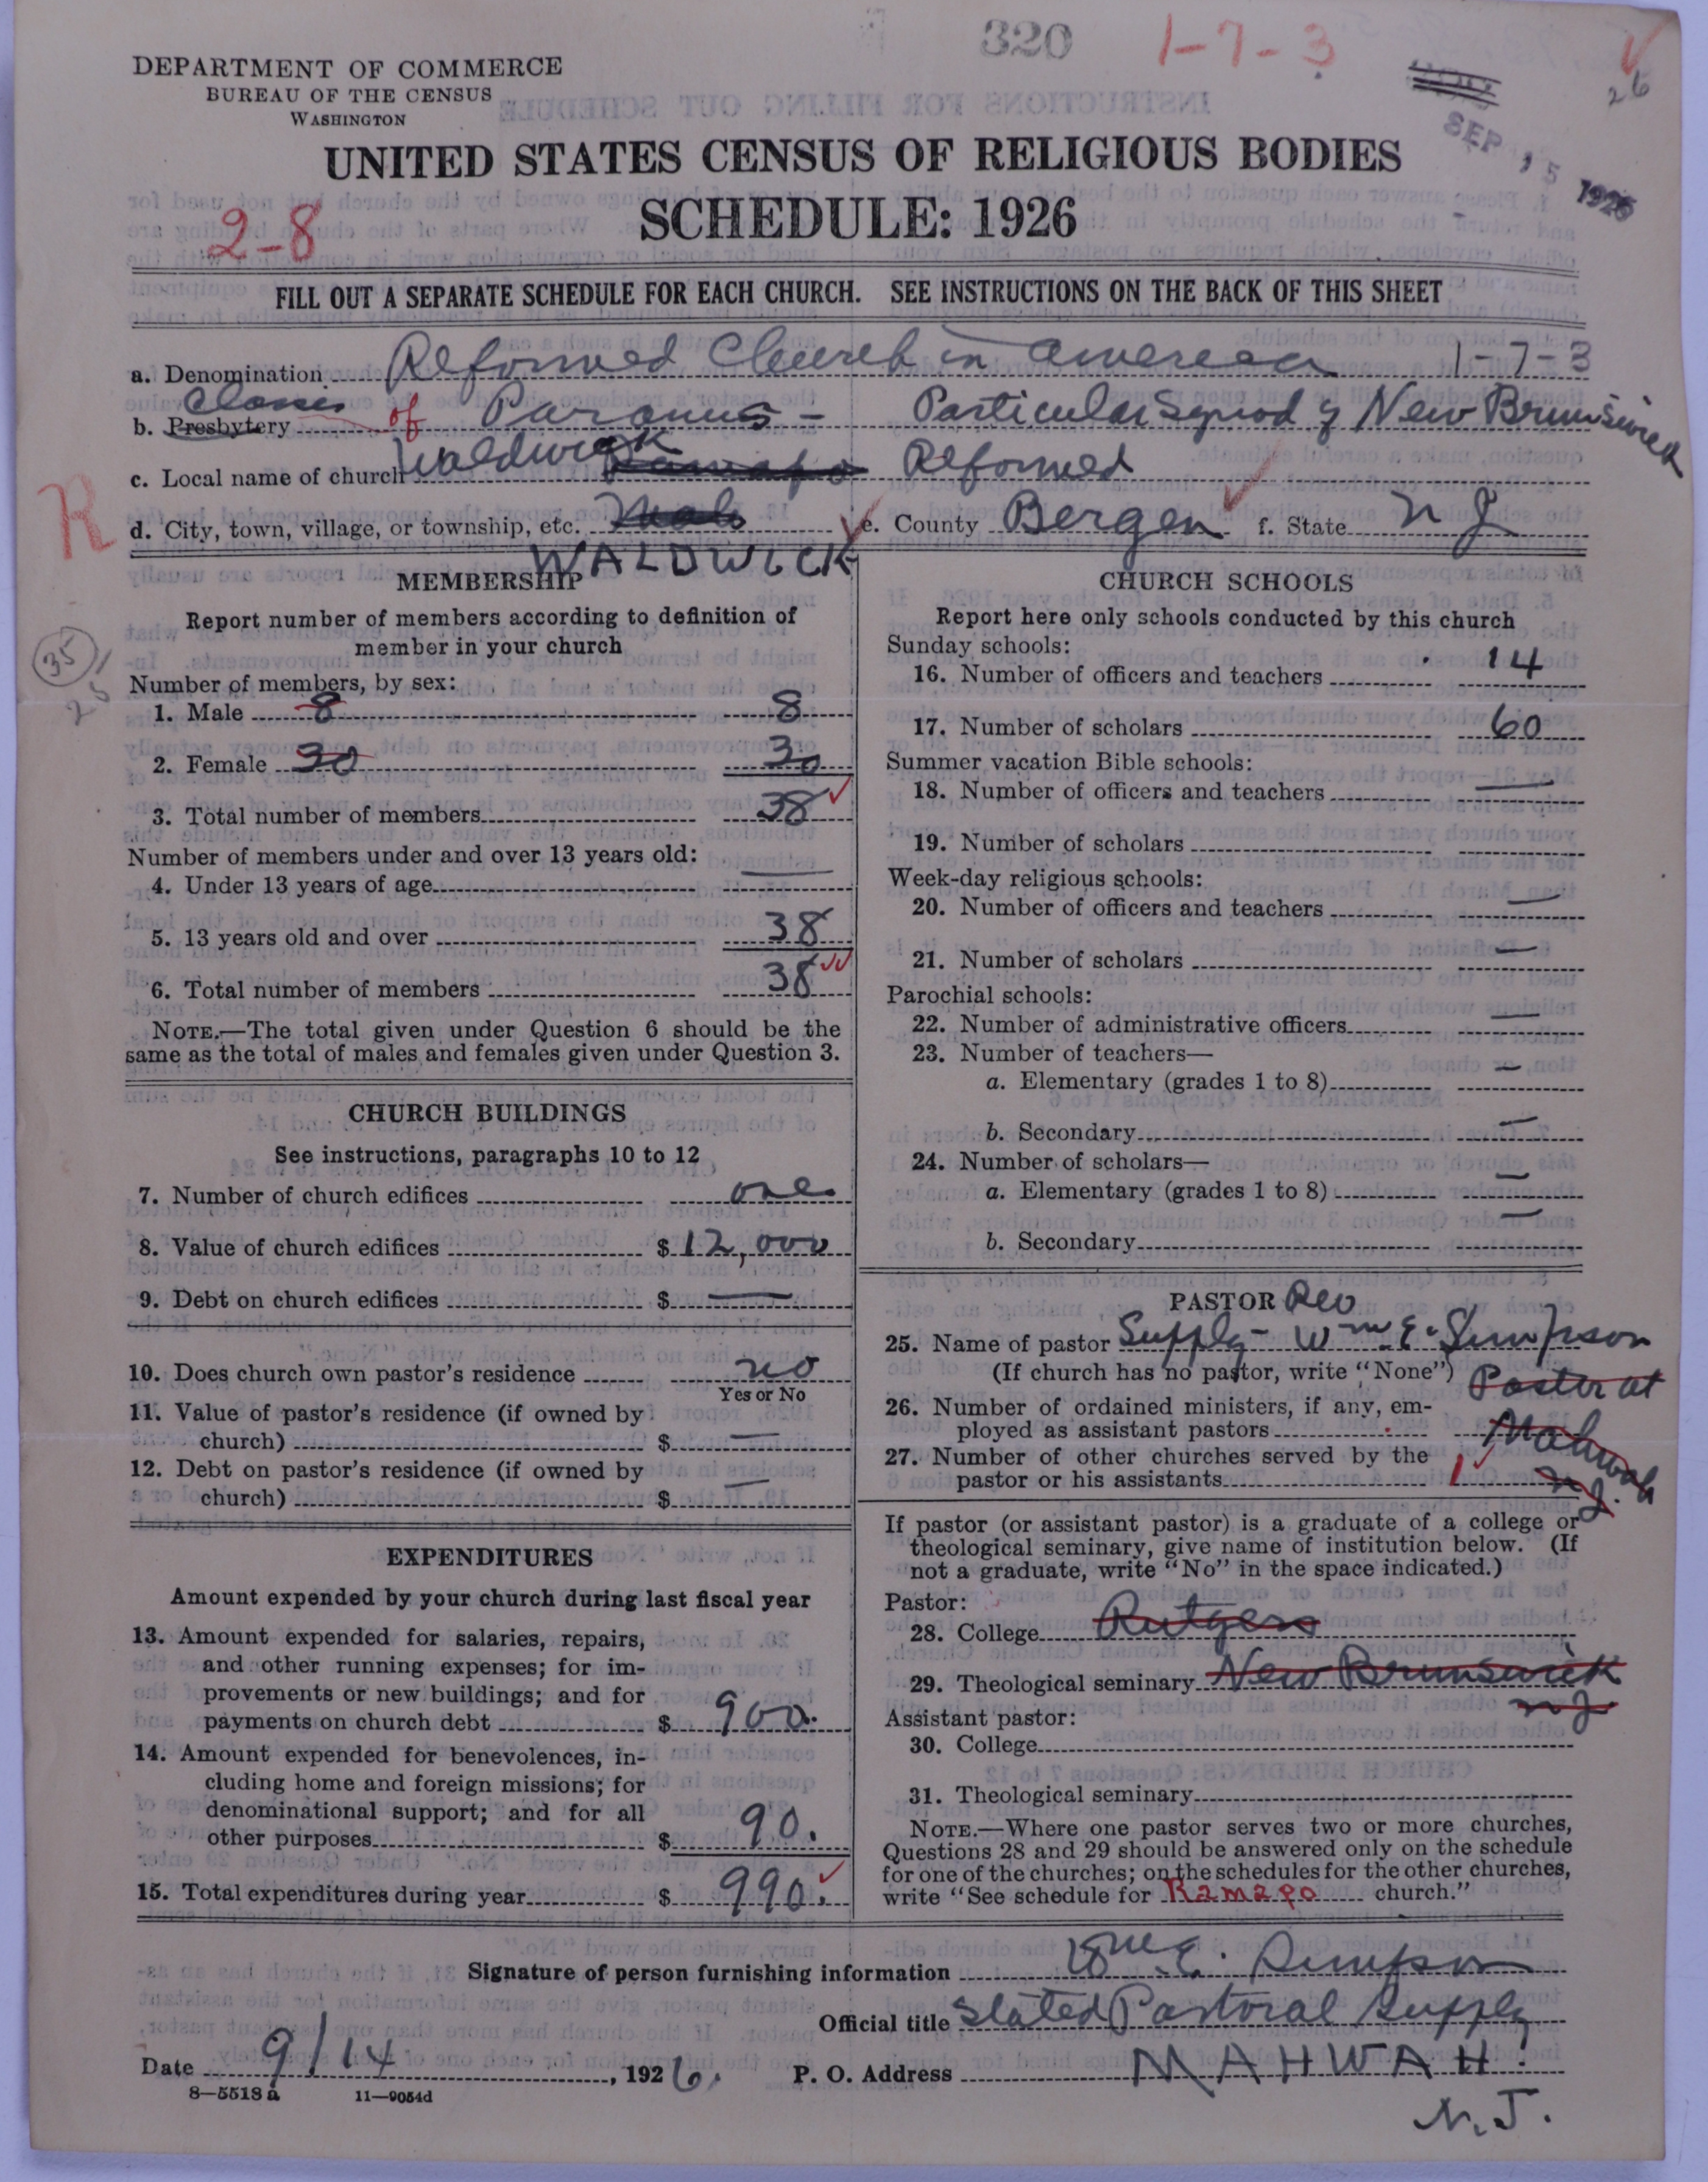 320 1-7-3
26
DEPARTMENT OF COMMERCE
BUREAU OF THE CENSUS
WASHINGTON
SEP 15 1926
UNITED STATES CENSUS OF RELIGIOUS BODIES
SCHEDULE: 1926
2-8
FILL OUT A SEPARATE SCHEDULE FOR EACH CHURCH. SEE INSTRUCTIONS ON THE BACK OF THIS SHEET
a. Denomination Reformed Church in America 1-7-3
Classis
b. Presbytery of Paramus - Particular Synod of New Brunswick
c. Local name of church Waldwick Ramapo Reformed
R
d. City, town, village, or township, etc. e. County Bergen f. State N J
WALDWICK
MEMBERSHIP
Report number of members according to definition of
member in your church
35
Number of members, by sex:
1. Male 8 8
2. Female 30 30
3. Total number of members 38
Number of members under and over 13 years old:
4. Under 13 years of age —
5. 13 years old and over 38
6. Total number of members 38
NOTE.—The total given under Question 6 should be the
same as the total of males and females given under Question 3.
CHURCH BUILDINGS
See instructions, paragraphs 10 to 12
7. Number of church edifices one
8. Value of church edifices $ 12,000
9. Debt on church edifices $ —
10. Does church own pastor's residence no
Yes or No
11. Value of pastor's residence (if owned by
church) $ —
12. Debt on pastor's residence (if owned by
church) $ —
EXPENDITURES
Amount expended by your church during last fiscal year
13. Amount expended for salaries, repairs,
and other running expenses; for im-
provements or new buildings; and for
payments on church debt $ 900.
14. Amount expended for benevolences, in-
cluding home and foreign missions; for
denominational support; and for all
other purposes $ 90.
15. Total expenditures during year $ 990.
CHURCH SCHOOLS
Report here only schools conducted by this church
Sunday schools:
16. Number of officers and teachers 14
17. Number of scholars 60
Summer vacation Bible schools:
18. Number of officers and teachers —
19. Number of scholars
Week-day religious schools:
20. Number of officers and teachers —
21. Number of scholars —
Parochial schools:
22. Number of administrative officers —
23. Number of teachers—
a. Elementary (grades 1 to 8) —
b. Secondary —
24. Number of scholars—
a. Elementary (grades 1 to 8) —
b. Secondary —
PASTOR Rev
25. Name of pastor Supply - Wm E. Simpson
(If church has no pastor, write "None") Pastor at
26. Number of ordained ministers, if any, em-
ployed as assistant pastors Mahwah
27. Number of other churches served by the
pastor or his assistants 1 N J.
If pastor (or assistant pastor) is a graduate of a college or
theological seminary, give name of institution below. (If
not a graduate, write "No" in the space indicated.)
Pastor:
28. College Rutgers
29. Theological seminary New Brunswick
N J
Assistant pastor:
30. College
31. Theological seminary
NOTE.—Where one pastor serves two or more churches,
Questions 28 and 29 should be answered only on the schedule
for one of the churches; on the schedules for the other churches,
write "See schedule for Ramapo church."
Signature of person furnishing information Wm E. Simpson
Official title Stated Pastoral Supply
Date 9/14, 1926. P. O. Address MAHWAH.
N. J.
8—5518a 11—9054d